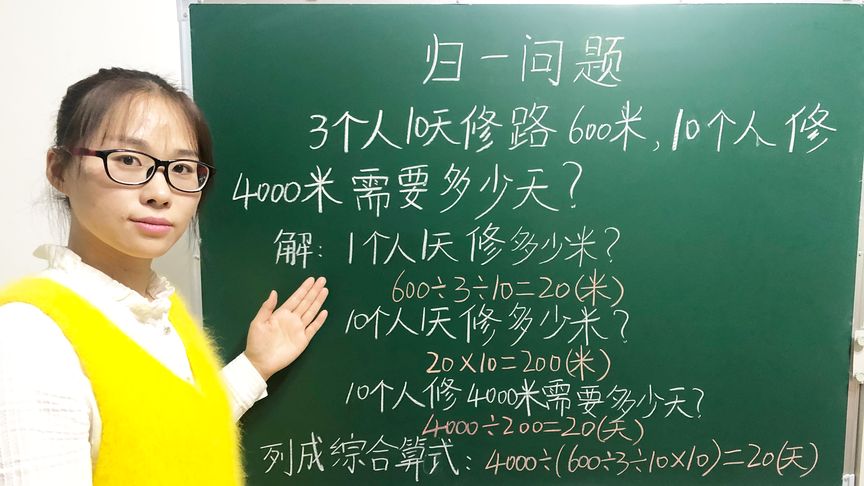 归一问题
3个人10天修路600米,10个人修
4000米需要多少天?
解:1个人1天修多少米?
600÷3÷10=20(米)
10个人1天修多少米?
20×10=200(米)
10个人修4000米需要多少天?
4000÷200=20(天)
列成综合算式:4000÷(600÷3÷10×10)=20(天)